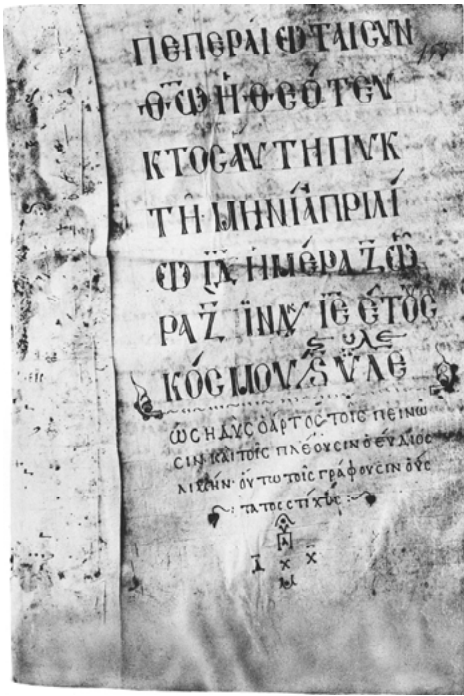 ΠΕΠΕΡΑΙΩΤΑΙ CΥΝ
Θ̅Ω̅ Ἡ ΘΕΌΤΕΥ
ΚΤΟC ΑΥΤΗ ΠΥΚ
ΤΗ· ΜΗΝΊ ἈΠΡΙΛΊ
Ω ΙΔ̅ ἩΜΈΡΑ Ζ̅ Ὠ
ΡΑ Ζ̅ ΪΝΔ ΙΕ̅ ἘΤΟC
ϛ υλε
ΚΌCΜΟΥ ϚΥΛΕ
ὡC ΗΔΥC Ὁ ΑΡΤΟC ΤΟΙC ΠΕΙΝΩ
CΙΝ ΚΑῚ ΤΟΙC ΠΛΈΟΥCΙΝ Ὁ ΕΥΔΙΟC
ΛΙΜΗΝ· ΟΥΤΩ ΤΟΙC ΓΡΆΦΟΥCΙΝ Ὁ ΥC
ΤΑΤΟC CΤΙΧΟC